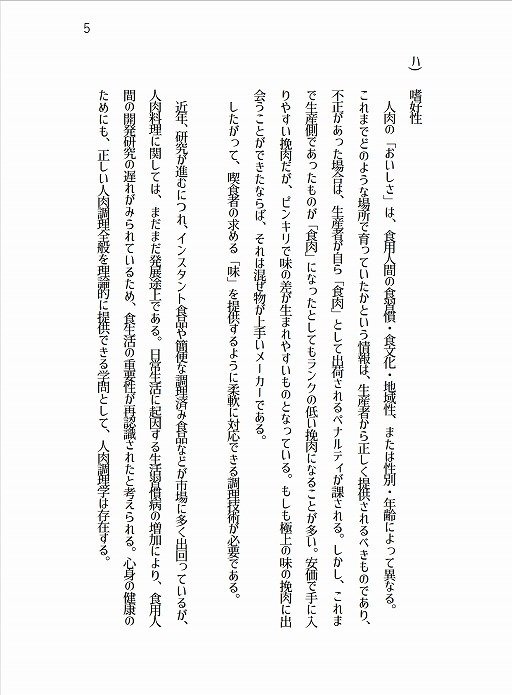 ハ)
嗜好性
人肉の「おいしさ」は、食用人間の食習慣・食文化・地域性、または性別・年齢によって異なる。
これまでどのような場所で育っていたかという情報は、生産者から正しく提供されるべきものであり、
不正があった場合は、生産者が自ら「食肉」として出荷されるペナルティが課される。しかし、これま
で生産側であったものが「食肉」になったとしてもランクの低い挽肉になることが多い。安価で手に入
りやすい挽肉だが、ピンキリで味の差が生まれやすいものとなっている。もしも極上の味の挽肉に出
会うことができたならば、それは混ぜ物が上手いメーカーである。
したがって、喫食者の求める「味」を提供するように柔軟に対応できる調理技術が必要である。
近年、研究が進むにつれ、インスタント食品や簡便な調理済み食品などが市場に多く出回っているが、
人肉料理に関しては、まだまだ発展途上である。日常生活に起因する生活習慣病の増加により、食用人
間の開発研究の遅れがみられているため、食生活の重要性が再認識されたと考えられる。心身の健康の
ためにも、正しい人肉調理全般を理論的に提供できる学問として、人肉調理学は存在する。
5